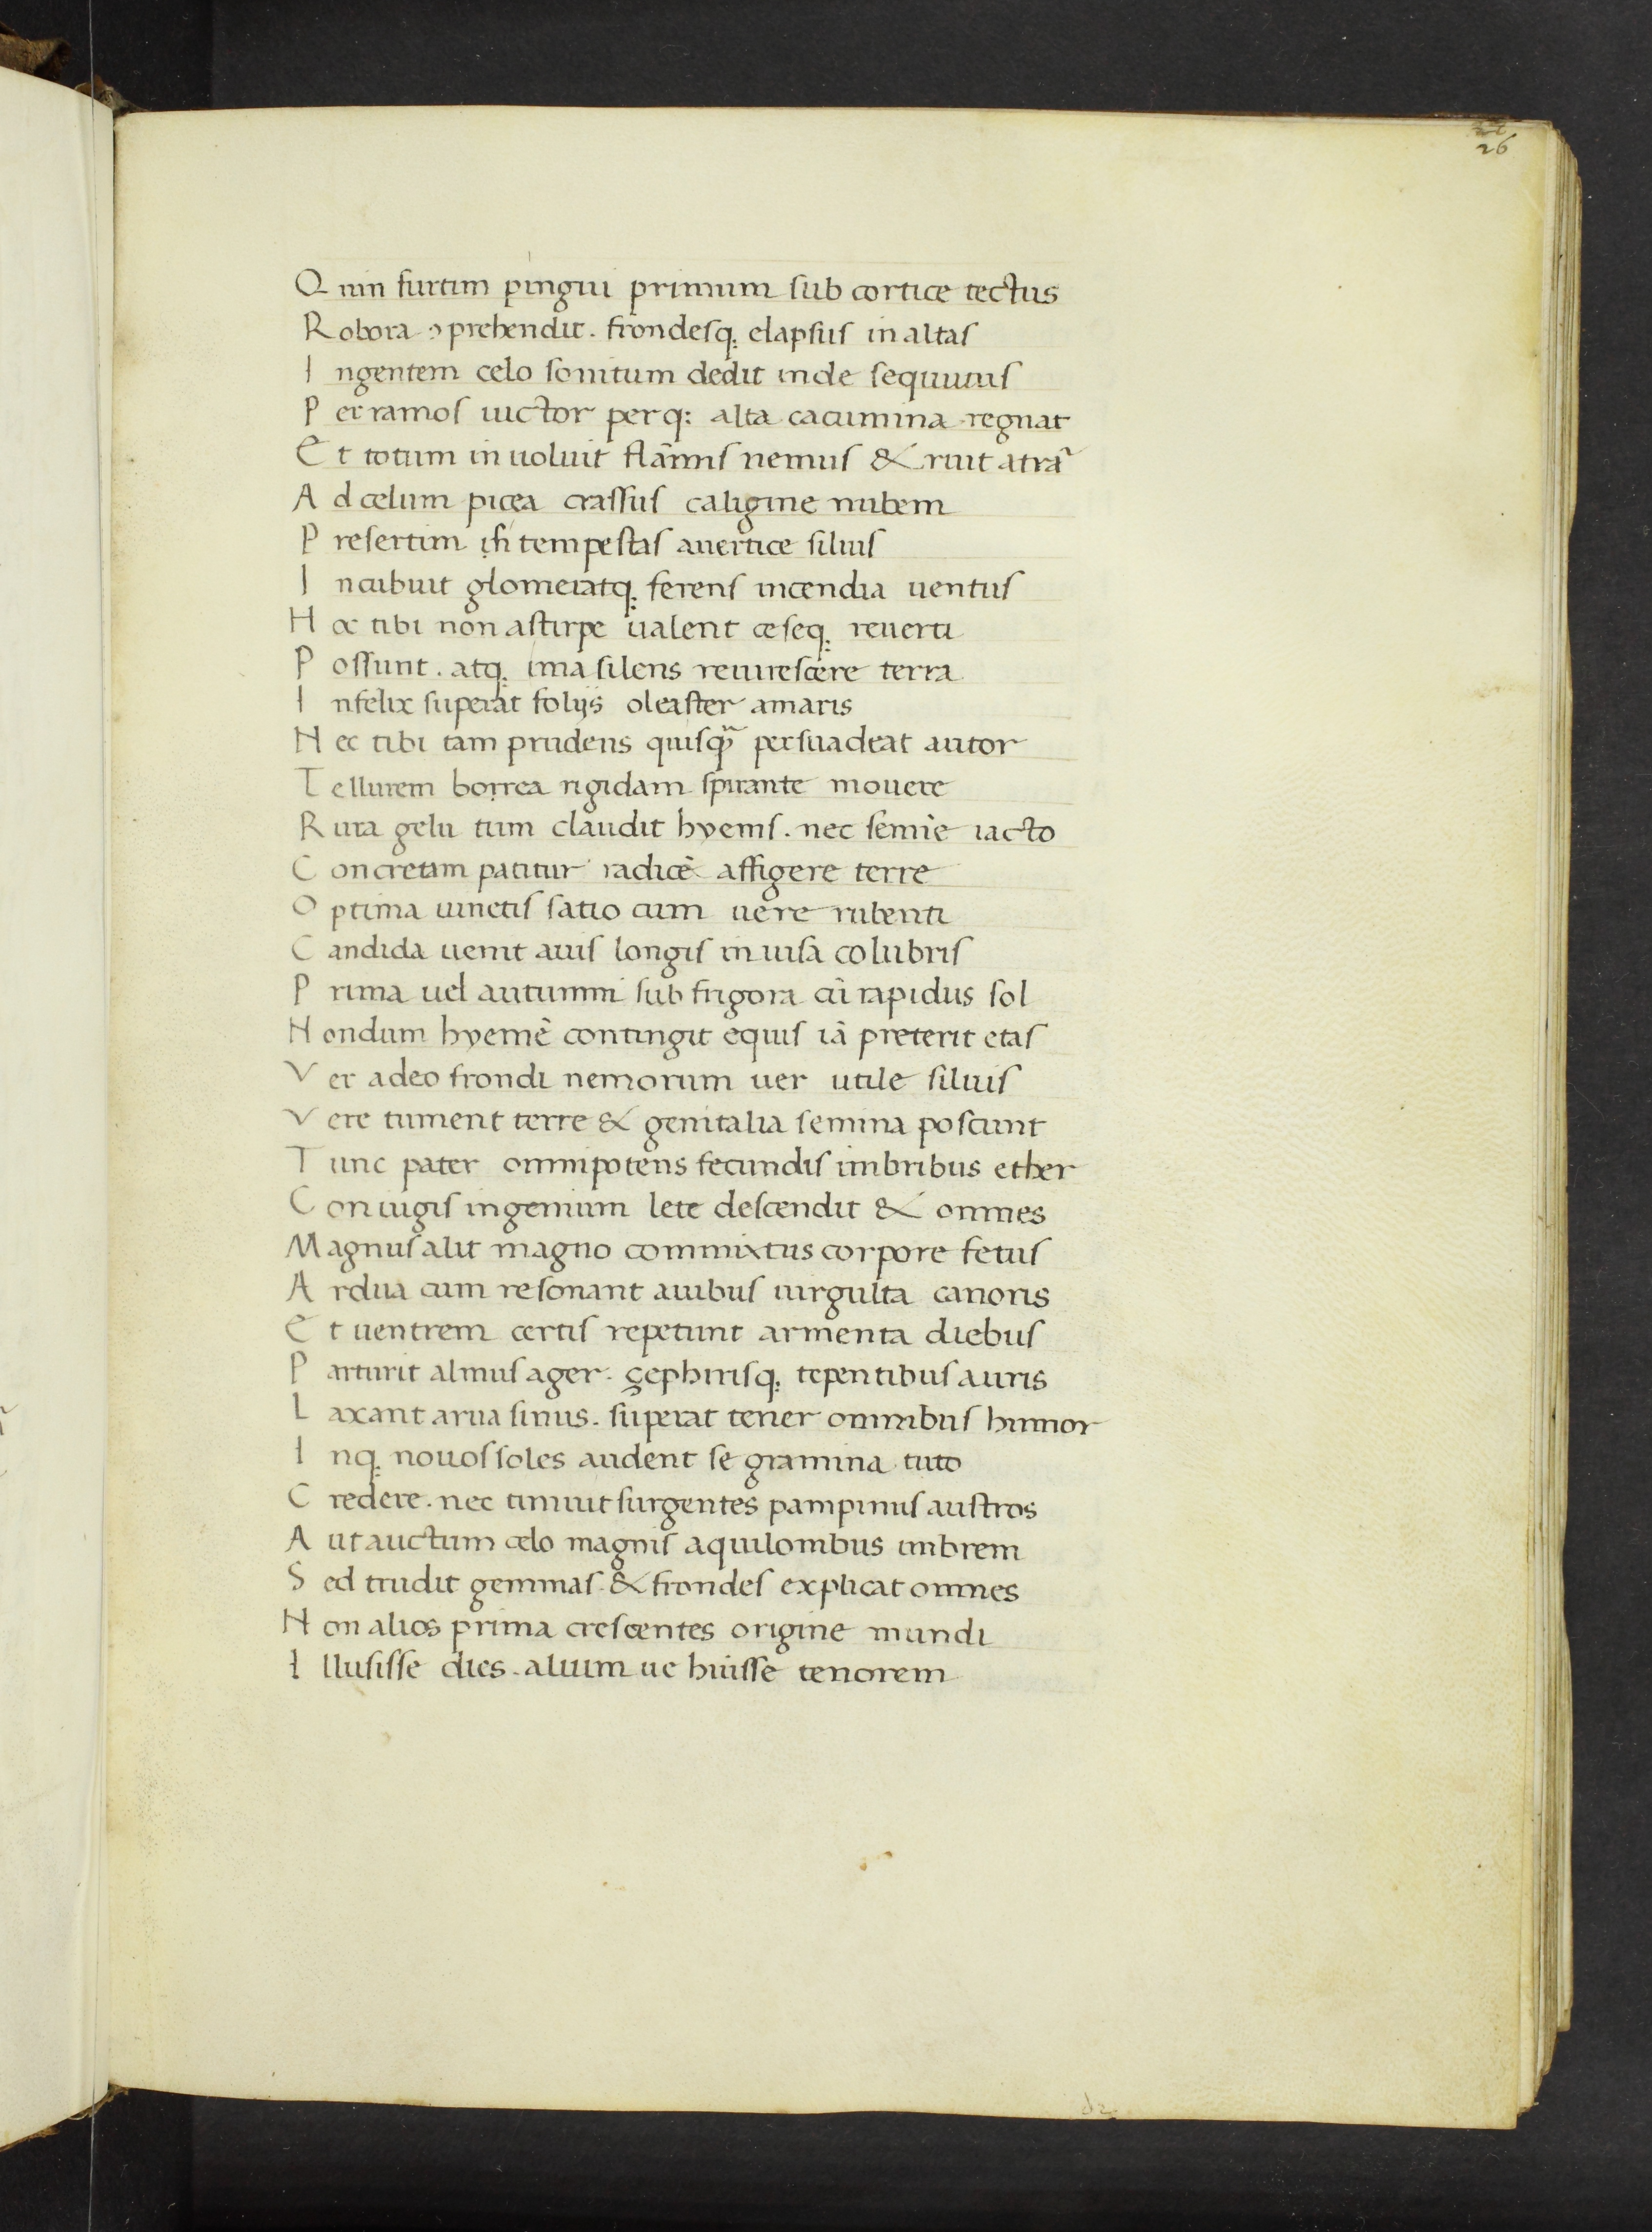 26
Quin furtim pingui primum sub cortice tectus
Robora ↄprehendit. frondesq; elapsus in altas
Ingentem celo sonitum dedit inde sequutus
Per ramos uictor perq: alta cacumina regnat
Et totum inuoluit flāmis nemus & ruit atrā
Ad celum picea crassus caligine nubem
Presertim si tempestas auertice siluis
Incubuit glomeratq; ferens incendia uentus
Hoc tibi non astirpe ualent ceseq; reuerti
Possunt. atq; ima silens reuirescere terra
Infelix superat folijs oleaster amaris
Nec tibi tam prudens quisq̄ persuadeat autor
Tellurem borrea rigidam spirante mouere
Rura gelu tum claudit hyems. nec semīe iacto
Concretam patitur radicē affigere terre
Optima uinetis satio cum uere rubenti
Candida uenit auis longis inuisa colubris
Prima uel autumni sub frigora cū rapidus sol
Nondum hyemē contingit equis iā preterit etas
Ver adeo frondi nemorum uer utile siluis
Vere tument terre & genitalia semina poscunt
Tunc pater omnipotens fecundis imbribus ether
Coniugis ingenium lete descendit & omnes
Magnus alit magno commixtus corpore fetus
Ardua cum resonant auibus uirgulta canoris
Et uentrem certis repetunt armenta diebus
Parturit almus ager. çephirisq; tepentibus auris
Laxant arua sinus. superat tener omnibus humor
Inq; nouos soles audent se gramina tuto
Credere. nec timuit surgentes pampinus austros
Aut auctum celo magnis aquilonibus imbrem
Sed trudit gemmas. & frondes explicat omnes
Non alios prima crescentes origine mundi
Illusisse dies. aliumue huisse tenorem